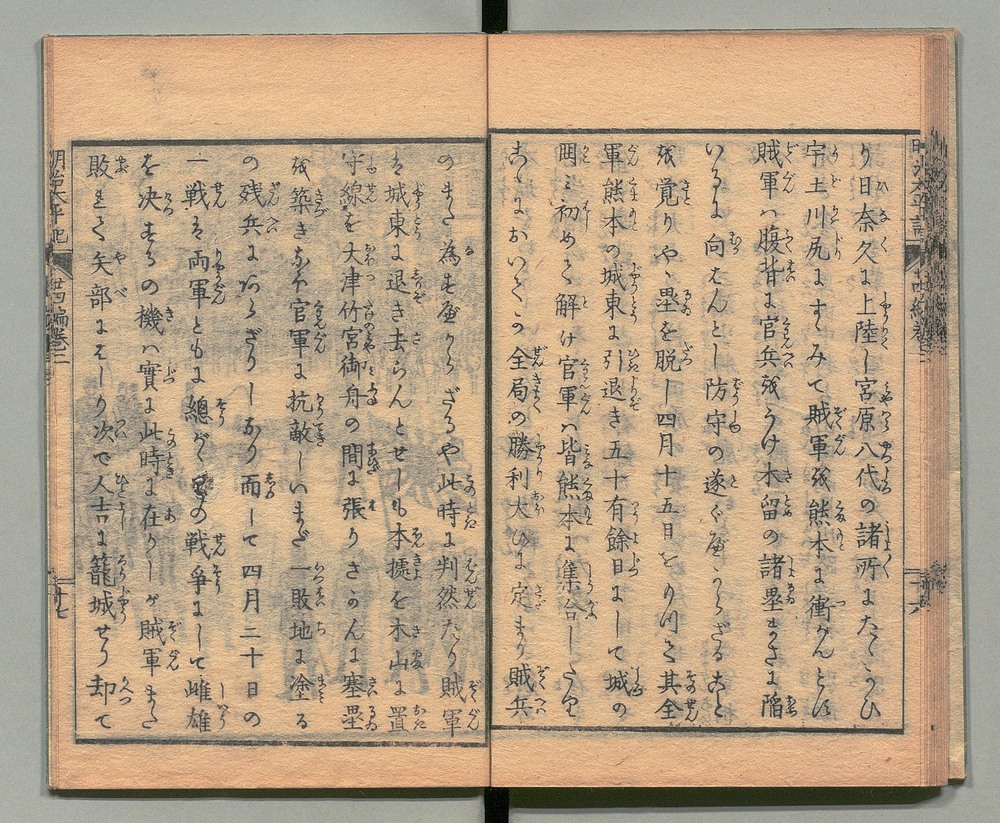 り日奈久に上陸し宮原八代の諸所にたゝかひ
宇土川尻にすゝみて賊軍を熊本に衝かんとは
賊軍ハ腹背に官兵をうけ木留の諸塁まさに陥
いるに向はんとし防守の遂ぐべからざること
を覚りや塁を脱し四月十五日をもつて其全
軍熊本の城東に引退き五十有餘日にして城の
囲ミ初めて解け官軍ハ皆熊本に集合したり
こゝにおいての全局の勝利大ひに定まり賊兵
のまた為すべからざるや此時に判然たり賊軍
は城東に退き去らんとせしも本據を木山に置
守線を大津竹宮御舟の間に張りさかんに塞塁
を築きなほ官軍に抗敵しいまだ一敗地に塗る
の残兵にあらざりしなり而して四月二十日の
一戦は両軍ともに總がゝりの戦争にして雌雄
を决するの機ハ實に此時に在りしが賊軍また
敗れて矢部にはしり次で人吉に籠城せり却て
明治太平記
廿四編巻二
十七